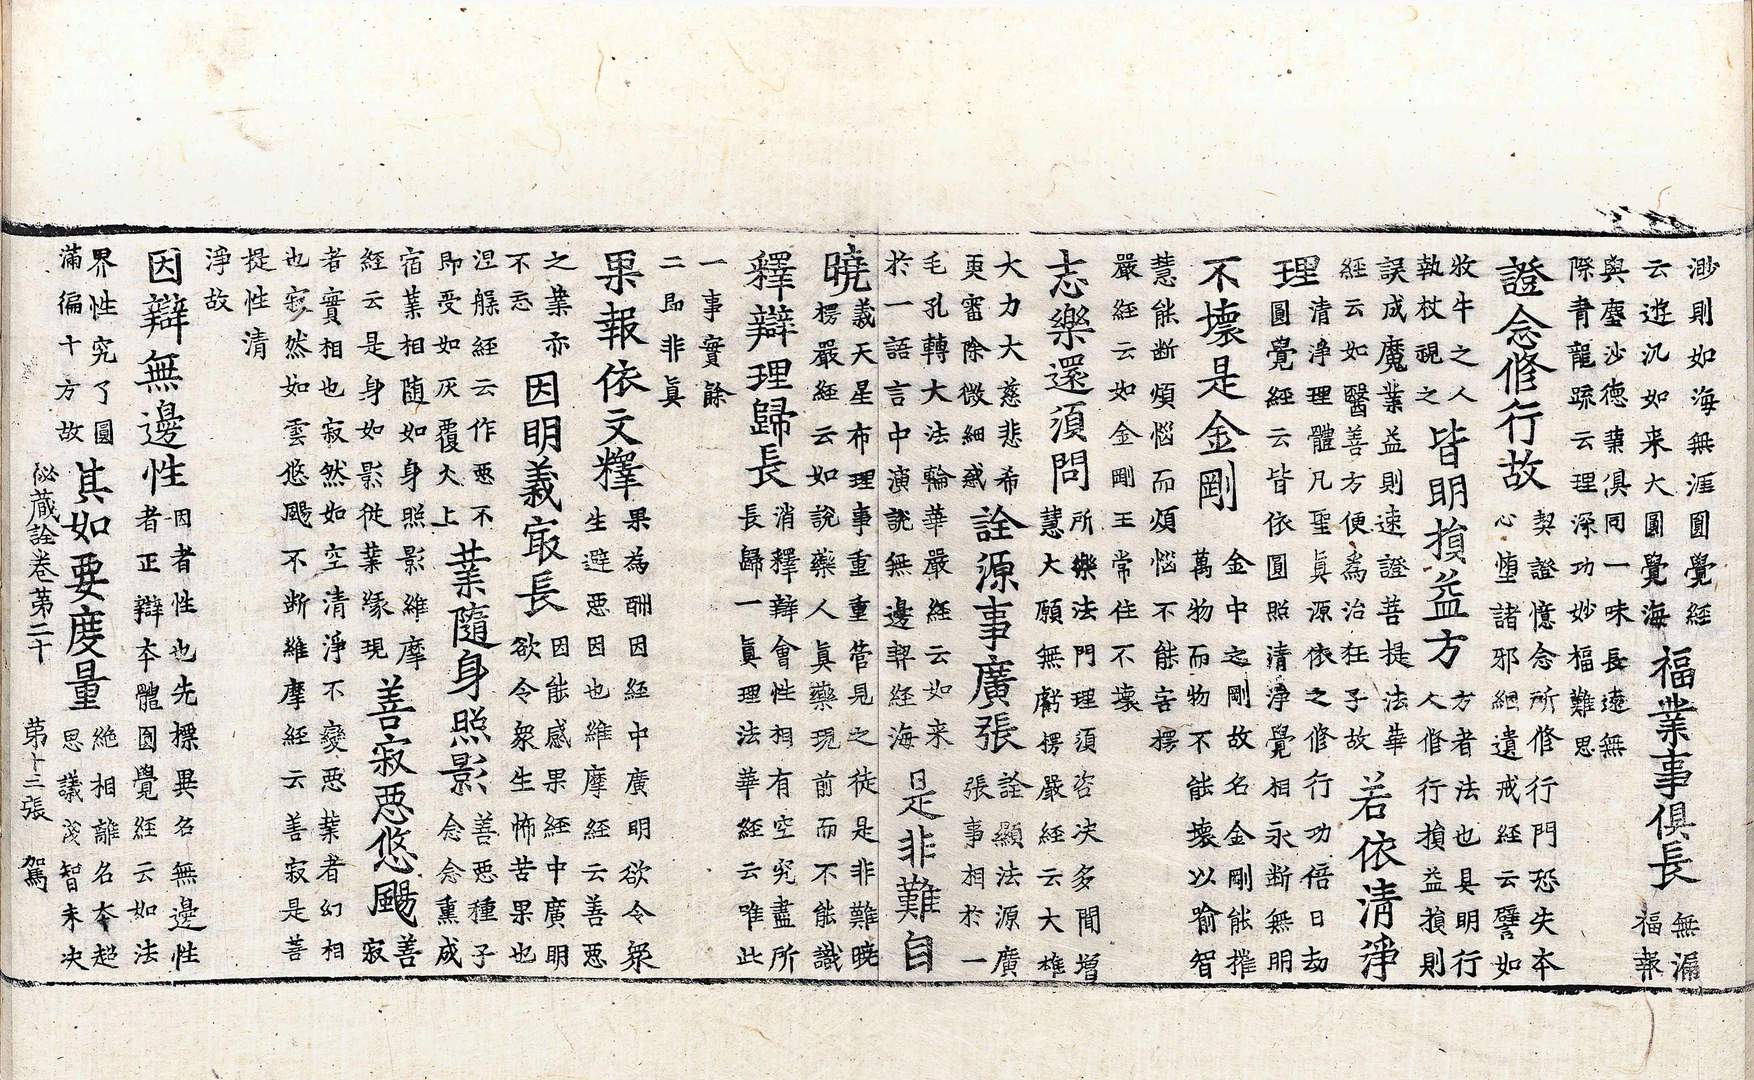 渺則如海無涯圓覺經
云遊汎如来大圓覺海
福業事俱長
無漏
福報
與塵沙德業俱同一味長遠無
際青龍䟽云理深功妙福難思
證念修行故
契證憶念所修行門恐失本
心墮諸邪網遺戒經云譬如
牧牛之人
執杖視之
皆明損益方
方者法也具明行
人修行損益損則
誤成魔業益則速證菩提法華
經云如醫善方便為治狂子故
若依清淨
理
清淨理體凡聖真源依之修行功倍日劫
圓覺經云皆依圓照清淨覺相永断無明
不壞是金剛
金中之剛故名金剛能摧
萬物而物不能壞以喻智
慧能断煩惱而煩惱不能害楞
嚴經云如金剛王常住不壞
志樂還須問
所樂法門理須咨决多聞增
慧大願無虧楞嚴經云大雄
大力大慈悲希
更審除微細惑
詮源事廣張
詮顯法源廣
張事相於一
毛孔轉大法輪華嚴經云如来
於一語言中演說無邊契經海
是非難自
曉
義天星布理事重重管見之徒是非難曉
楞嚴經云如說藥人真藥現前而不能識
釋辯理歸長
消釋辯會性相有空究盡所
長歸一真理法華經云唯此
一事實餘
二即非真
果報依文釋
果為酬因經中廣明欲令衆
生避惡因也維摩經云善惡
之業亦
不忘
因明義㝡長
因能感果經中廣明
欲令衆生怖苦果也
涅槃經云作惡不
即受如灰覆火上
業隨身照影
善惡種子
念念熏成
宿業相随如身照影維摩
經云是身如影従業緣現
善寂惡悠颺
善
寂
者實相也寂然如空清淨不變惡業者幻相
也寂然如雲悠颺不断維摩經云善寂是菩
提性清
淨故
因辯無邊性
因者性也先標異名無邊性
者正辯本體圓覺經云如法
界性究了圓
滿徧十方故
其如要度量
絶相離名本超
思議淺智未决
秘蔵詮卷第二十 第十三張 駕